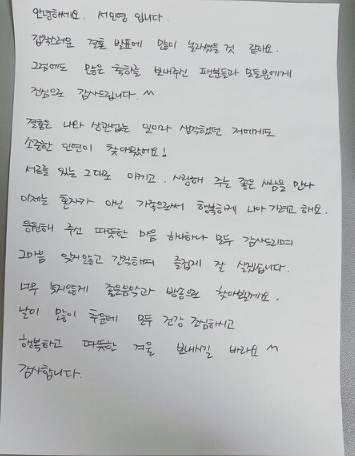 안녕하세요. 서인영 입니다.
갑작스러운 결혼 발표에 많이 놀라셨을 것 같아요.
그럼에도 많은 축하를 보내주신 팬분들과 모든분에게
진심으로 감사드립니다. ^^
결혼은 나와 상관없는 일이라 생각했던 저에게도
소중한 인연이 찾아왔어요!
서로를 있는 그대로 아끼고, 사랑해 주는 좋은 사람을 만나
이제는 혼자가 아닌 가족으로써 행복하게 나아 가려고 해요.
응원해 주신 따뜻한 마음 하나하나 모두 감사드리며
그마음 잊지않고 간직하며 즐겁게 잘 살겠습니다.
너무 늦지않게 좋은음악과 방송으로 찾아뵐게요.
날이 많이 추운데 모두 건강 조심하시고
행복하고 따뜻한 겨울 보내시길 바라요 ^^
감사합니다.